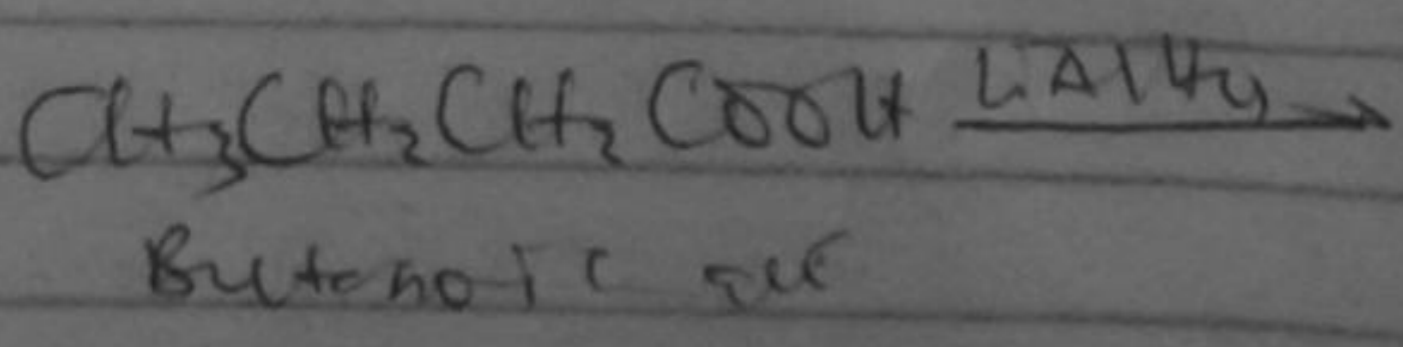 CH3CH2CH2COOH LiAlH4
Butanoic